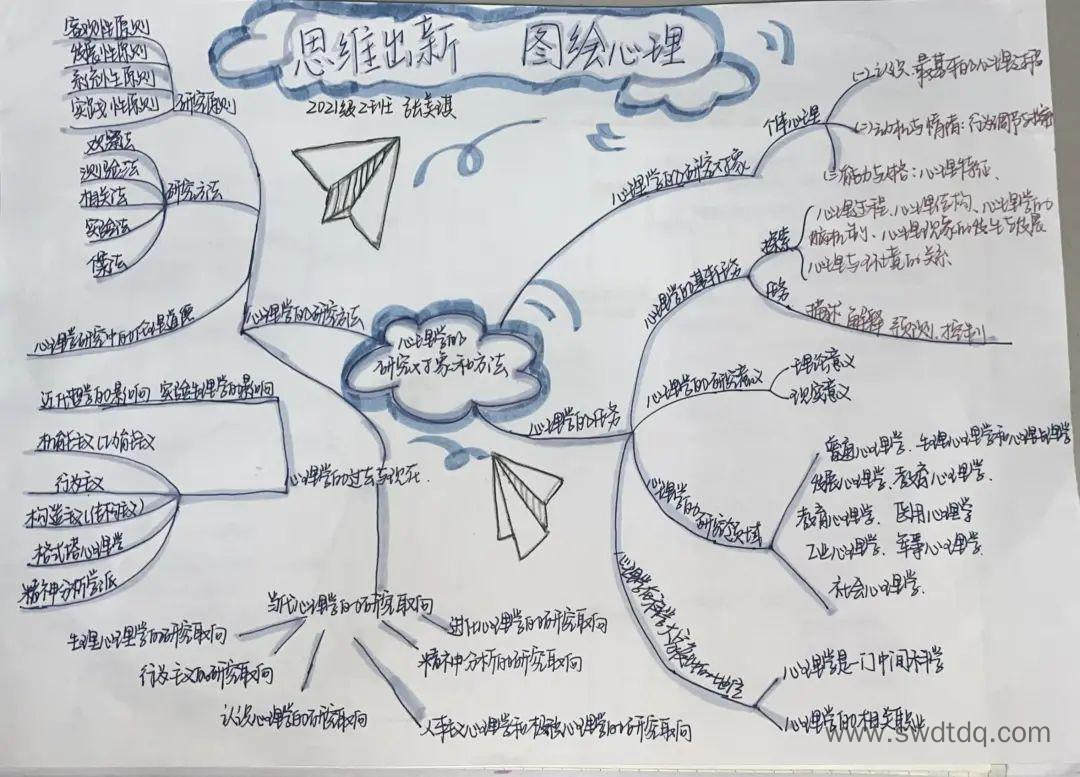 思维出新 图绘心理
2021级2班
客观性原则
发展性原则
系统性原则
实践性原则
研究原则
观察法
测验法
相关法
实验法
研究方法
心理学研究中的伦理道德
心理学的研究方法
近代哲学的影响 实验生理学的影响
机能主义
行为主义
构造主义(结构主义)
格式塔心理学
精神分析学派
心理学的过去与现在
当代心理学的研究取向
生理心理学的研究取向
行为主义的研究取向
认识心理学的研究取向
人本主义心理学和积极心理学的研究取向
精神分析的研究取向
进化心理学的研究取向
心理学的
研究对象和方法
心理学的研究对象
个体心理
(一)认识:最基本的心理过程
(二)动机与情绪:行为调节与
(三)能力与性格:心理特征、
心理学的任务
心理学的基本任务
探索
心理过程、心理结构、心理学的
脑机制、心理现象的发生与发展
心理与环境的关系
任务
描述 解释 预测、控制
心理学的研究意义
理论意义
现实意义
心理学的研究领域
普通心理学、生理心理学和心理生理学
发展心理学、教育心理学、
教育心理学、医用心理学
工业心理学、军事心理学、
社会心理学、
心理学是一门中间科学
心理学的相关职业
www.swdtdq.com